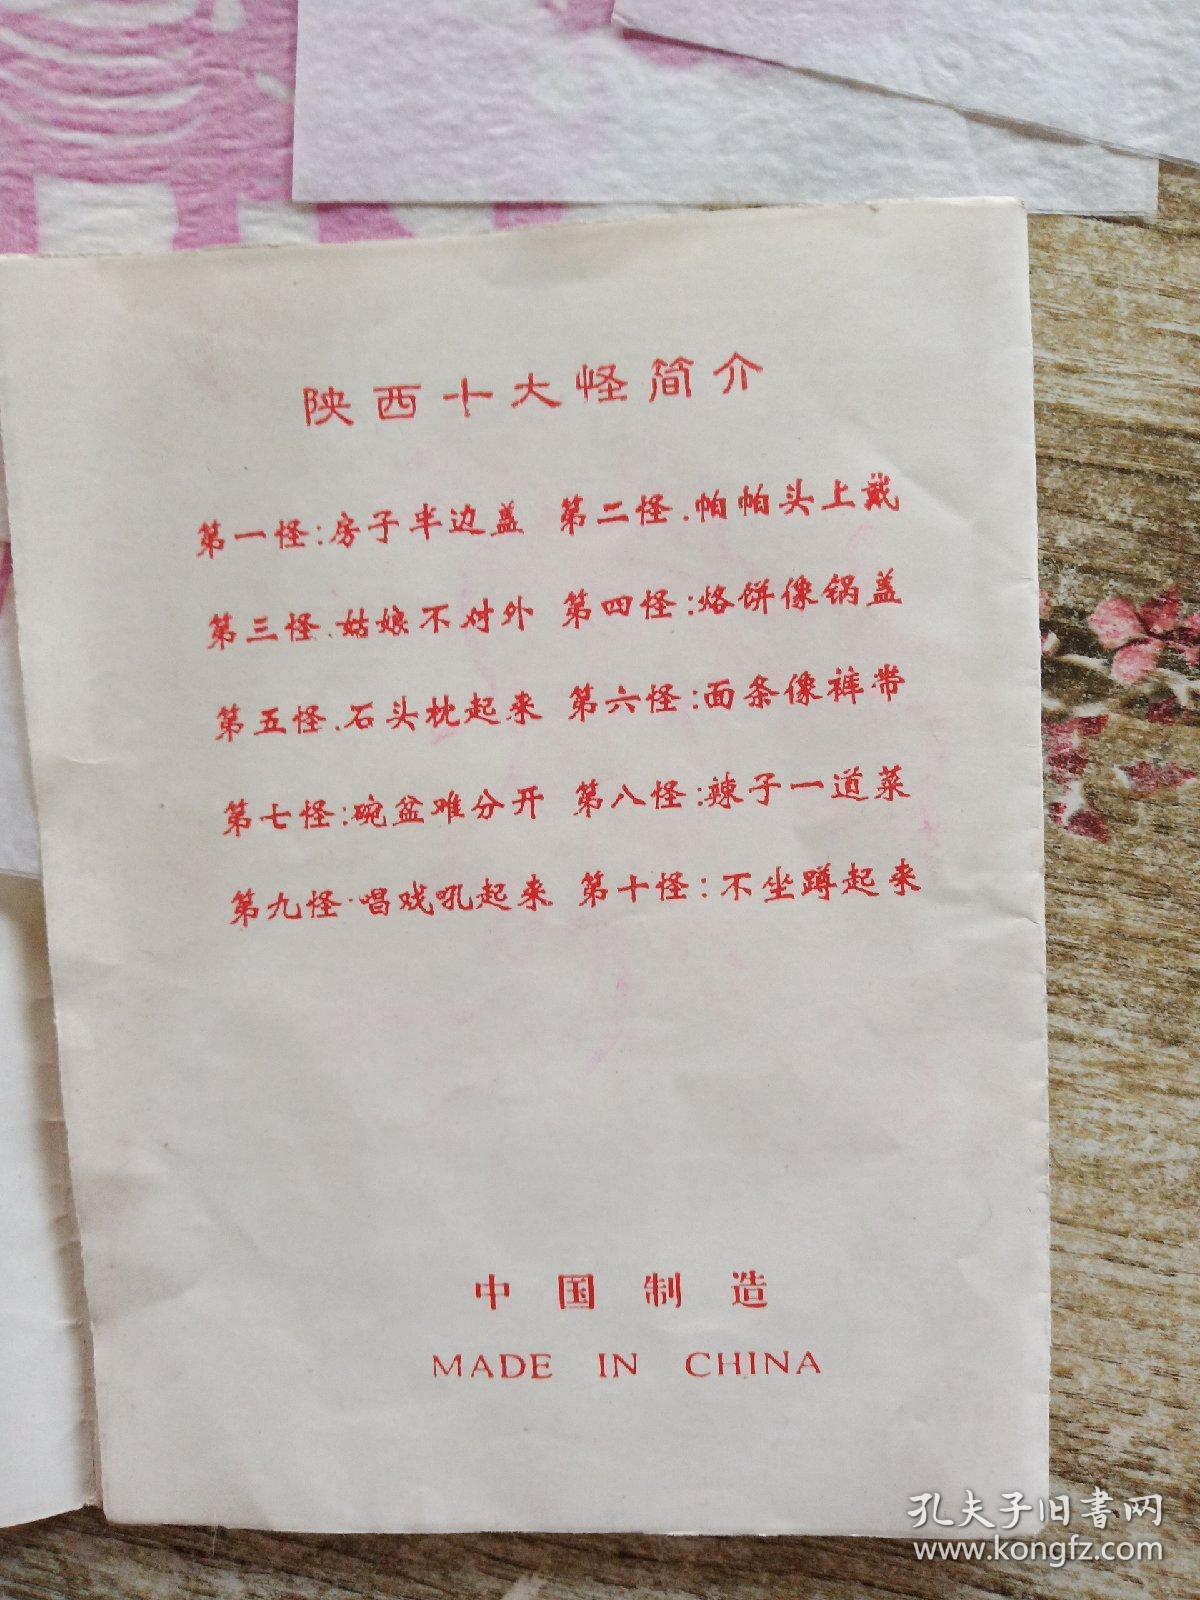 陕西十大怪简介
第一怪：房子半边盖 第二怪．帕帕头上戴
第三怪．姑娘不对外 第四怪：烙饼像锅盖
第五怪．石头枕起来 第六怪：面条像裤带
第七怪：碗盆难分开 第八怪：辣子一道菜
第九怪·唱戏吼起来 第十怪：不坐蹲起来
中国制造
MADE IN CHINA
孔夫子旧書网
www.kongfz.com